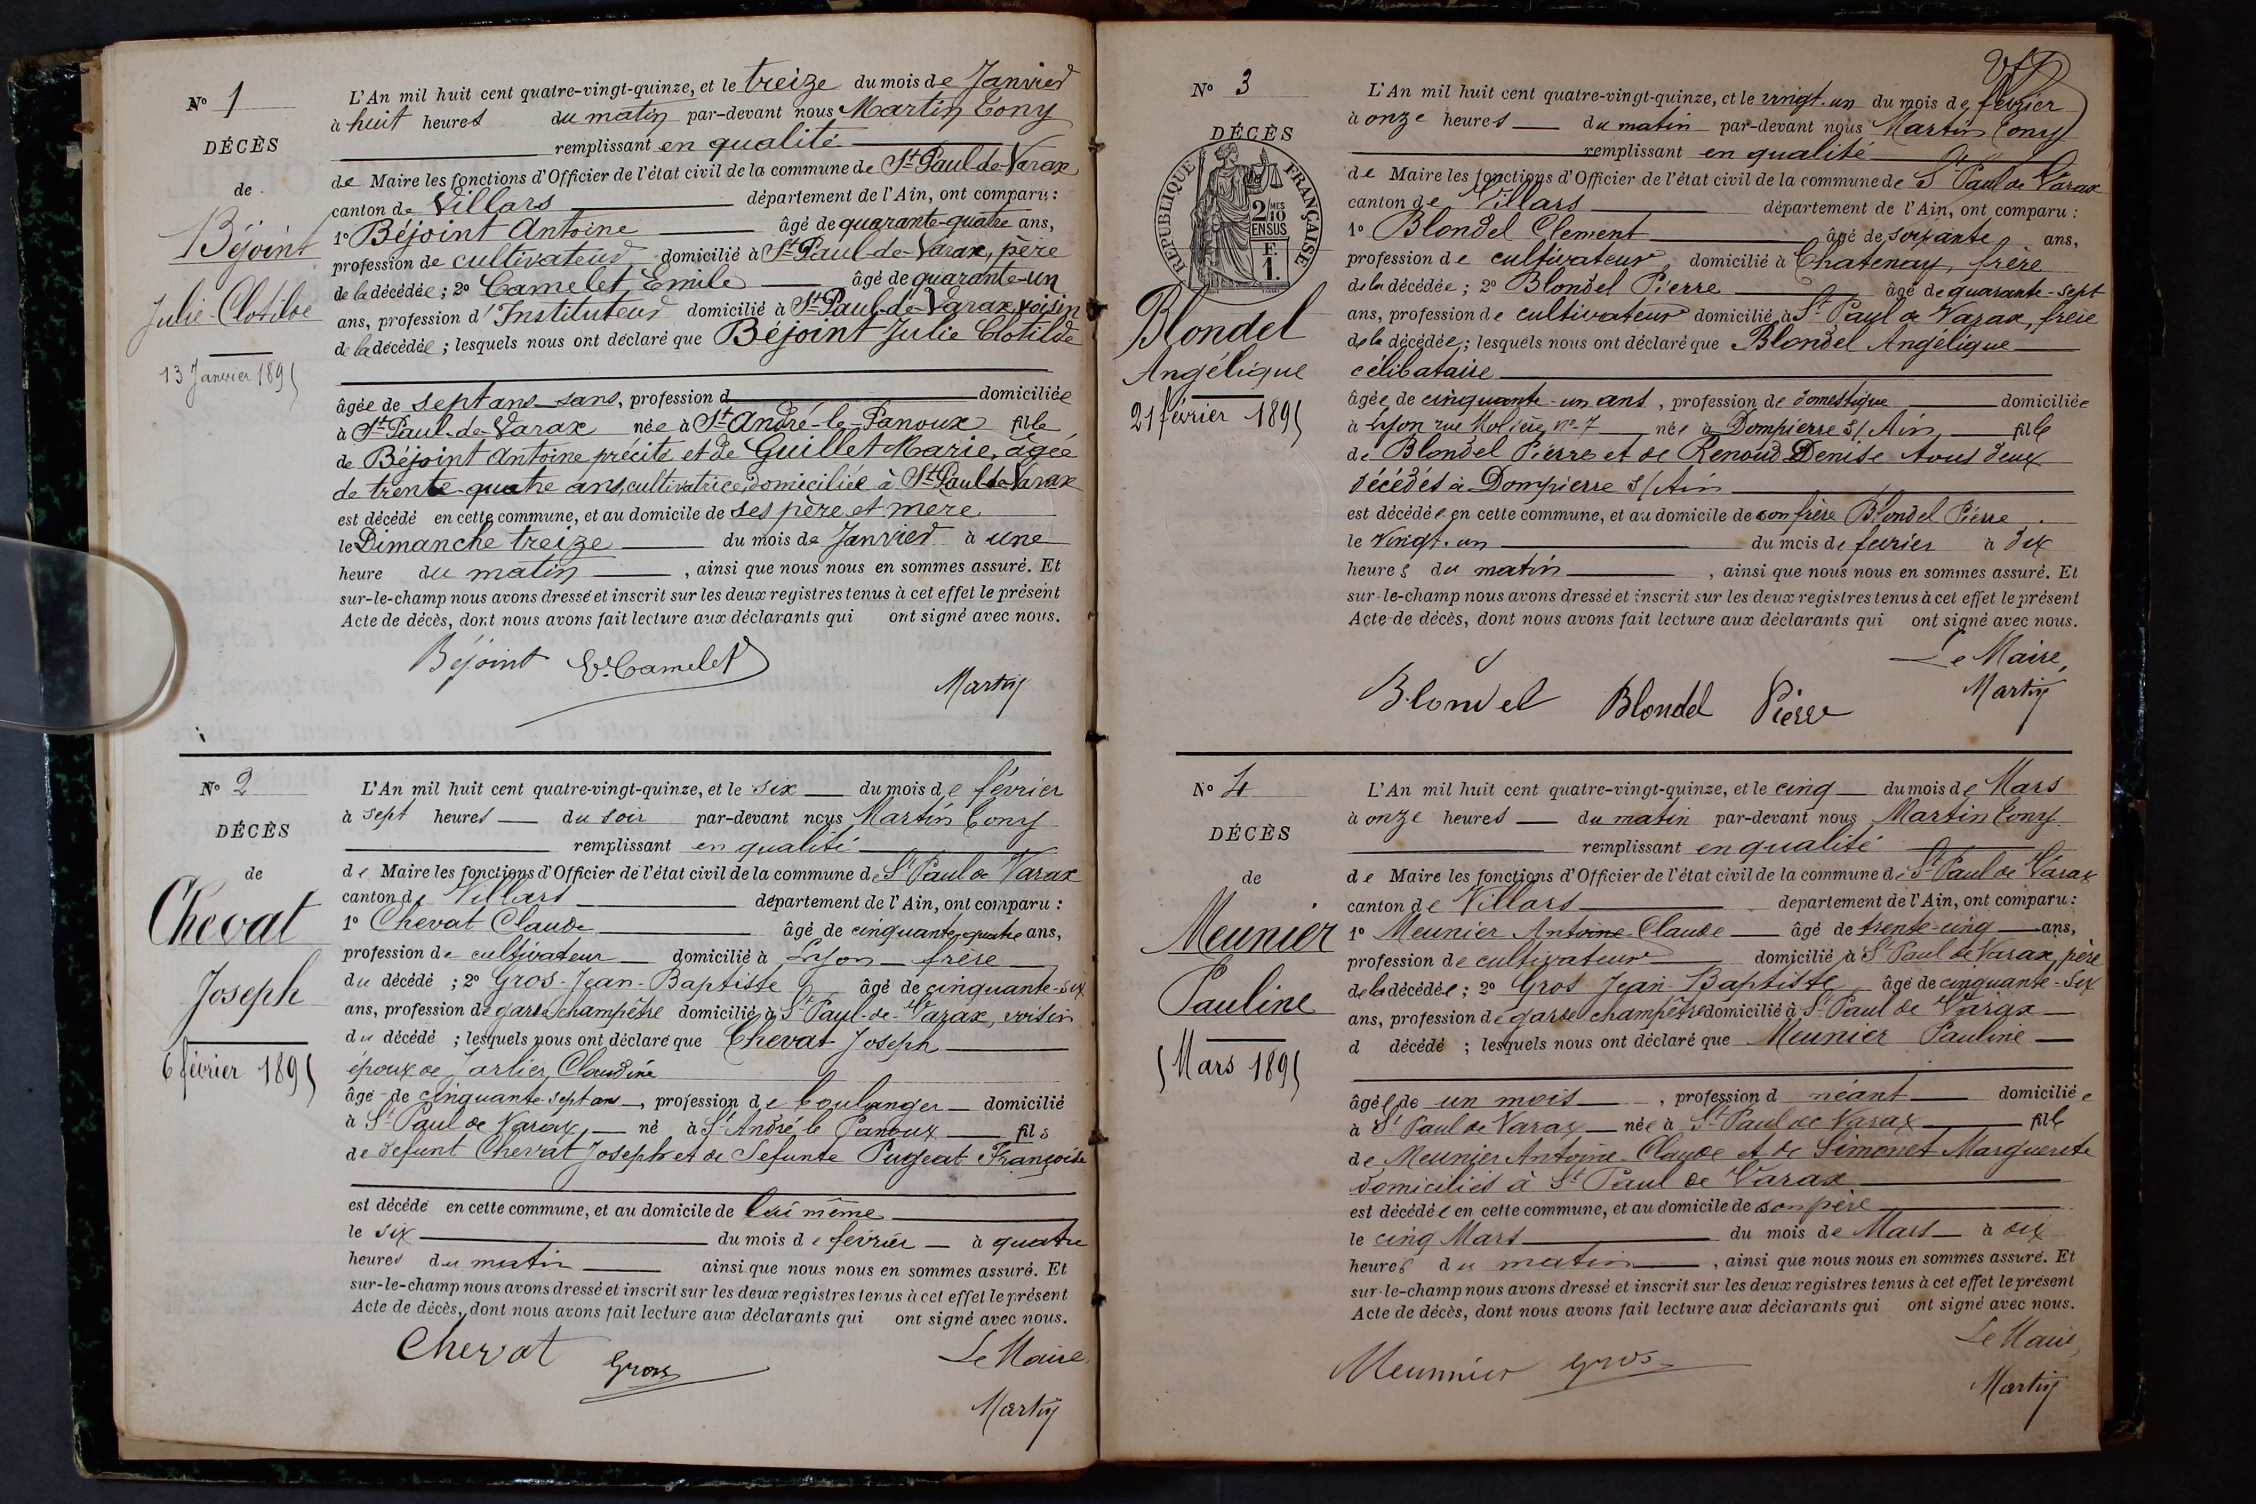 N° 1
DÉCÈS
de
Béjoint
Julie Clotilde
13 Janvier 1895
L'An mil huit cent quatre-vingt-quinze, et le treize du mois de Janvier
à huit heures du matin par-devant nous Martin Tony
remplissant en qualité
de Maire les fonctions d'Officier de l'état civil de la commune de St Paul-de-Varax
canton de Villars département de l'Ain, ont comparu :
1° Béjoint Antoine âgé de quarante-quatre ans,
profession de cultivateur domicilié à St Paul-de-Varax, père
de la décédée ; 2° Camelet Emile âgé de quarante-un
ans, profession d'Instituteur domicilié à St Paul-de-Varax, voisin
de la décédée ; lesquels nous ont déclaré que Béjoint Julie Clotilde
âgée de sept ans sans, profession d domiciliée
à St Paul-de-Varax née à St André-le-Panoux fille
de Béjoint Antoine précité et de Guillet Marie, âgée
de trente-quatre ans, cultivatrice, domiciliée à St Paul-de-Varax
est décédé en cette commune, et au domicile de ses père et mère
le Dimanche treize du mois de Janvier à une
heure du matin , ainsi que nous nous en sommes assuré. Et
sur-le-champ nous avons dressé et inscrit sur les deux registres tenus à cet effet le présent
Acte de décès, dont nous avons fait lecture aux déclarants qui ont signé avec nous.
Béjoint E. Camelet
Martin
N° 2
DÉCÈS
de
Chevat
Joseph
6 février 1895
L'An mil huit cent quatre-vingt-quinze, et le six du mois de février
à sept heures du soir par-devant nous Martin Tony
remplissant en qualité
de Maire les fonctions d'Officier de l'état civil de la commune de St Paul de Varax
canton de Villars département de l'Ain, ont comparu :
1° Chevat Claude âgé de cinquante quatre ans,
profession de cultivateur domicilié à Lyon frère
du décédé ; 2° Gros Jean-Baptiste âgé de cinquante-six
ans, profession de garde champêtre domicilié à St Paul-de-Varax, voisin
du décédé ; lesquels nous ont déclaré que Chevat Joseph
époux de Jarlier Claudine
âgé de cinquante-sept ans, profession de boulanger domicilié
à St Paul de Varax né à St André le Panoux fils
de défunt Chevat Joseph et de défunte Pugeat Françoise
est décédé en cette commune, et au domicile de lui même
le six du mois de février à quatre
heures du matin ainsi que nous nous en sommes assuré. Et
sur-le-champ nous avons dressé et inscrit sur les deux registres tenus à cet effet le présent
Acte de décès, dont nous avons fait lecture aux déclarants qui ont signé avec nous.
Chevat Gros Le Maire
Martin
N° 3
DÉCÈS
de
RÉPUBLIQUE FRANÇAISE
2 MES
10
EN SUS
F.
1.
Blondel
Angélique
21 février 1895
L'An mil huit cent quatre-vingt-quinze, et le vingt-un du mois de février
à onze heures du matin par-devant nous Martin Tony
remplissant en qualité
de Maire les fonctions d'Officier de l'état civil de la commune de St Paul de Varax
canton de Villars département de l'Ain, ont comparu :
1° Blondel Clement âgé de soixante ans,
profession de cultivateur, domicilié à Chatenay, frère
de la décédée ; 2° Blondel Pierre âgé de quarante-sept
ans, profession de cultivateur domicilié à St Paul de Varax, frère
de la décédée ; lesquels nous ont déclaré que Blondel Angélique
célibataire
âgée de cinquante-un ans, profession de domestique domiciliée
à Lyon rue Molière n° 7 née à Dompierre s/ Ain fille
de Blondel Pierre et de Renoud Denise tous deux
décédés à Dompierre s/ Ain
est décédée en cette commune, et au domicile de son frère Blondel Pierre
le vingt-un du mois de février à dix
heures du matin , ainsi que nous nous en sommes assuré. Et
sur-le-champ nous avons dressé et inscrit sur les deux registres tenus à cet effet le présent
Acte de décès, dont nous avons fait lecture aux déclarants qui ont signé avec nous.
Le Maire,
Blondel Blondel Pierre Martin
N° 4
DÉCÈS
de
Meunier
Pauline
5 Mars 1895
L'An mil huit cent quatre-vingt-quinze, et le cinq du mois de Mars
à onze heures du matin par-devant nous Martin Tony
remplissant en qualité
de Maire les fonctions d'Officier de l'état civil de la commune de St Paul de Varax
canton de Villars département de l'Ain, ont comparu :
1° Meunier Antoine Claude âgé de trente-cinq ans,
profession de cultivateur domicilié à St Paul de Varax, père
de la décédée ; 2° Gros Jean Baptiste âgé de cinquante-six
ans, profession de garde champêtre domicilié à St Paul de Varax
d décédé ; lesquels nous ont déclaré que Meunier Pauline
âgée de un mois , profession d néant domiciliée
à St Paul de Varax née à St Paul de Varax fille
de Meunier Antoine Claude et de Simonet Marguerete
domiciliés à St Paul de Varax
est décédée en cette commune, et au domicile de son père
le cinq Mars du mois de Mars à six
heures du matin , ainsi que nous nous en sommes assuré. Et
sur-le-champ nous avons dressé et inscrit sur les deux registres tenus à cet effet le présent
Acte de décès, dont nous avons fait lecture aux déclarants qui ont signé avec nous.
Le Maire
Meunnier Gros Martin